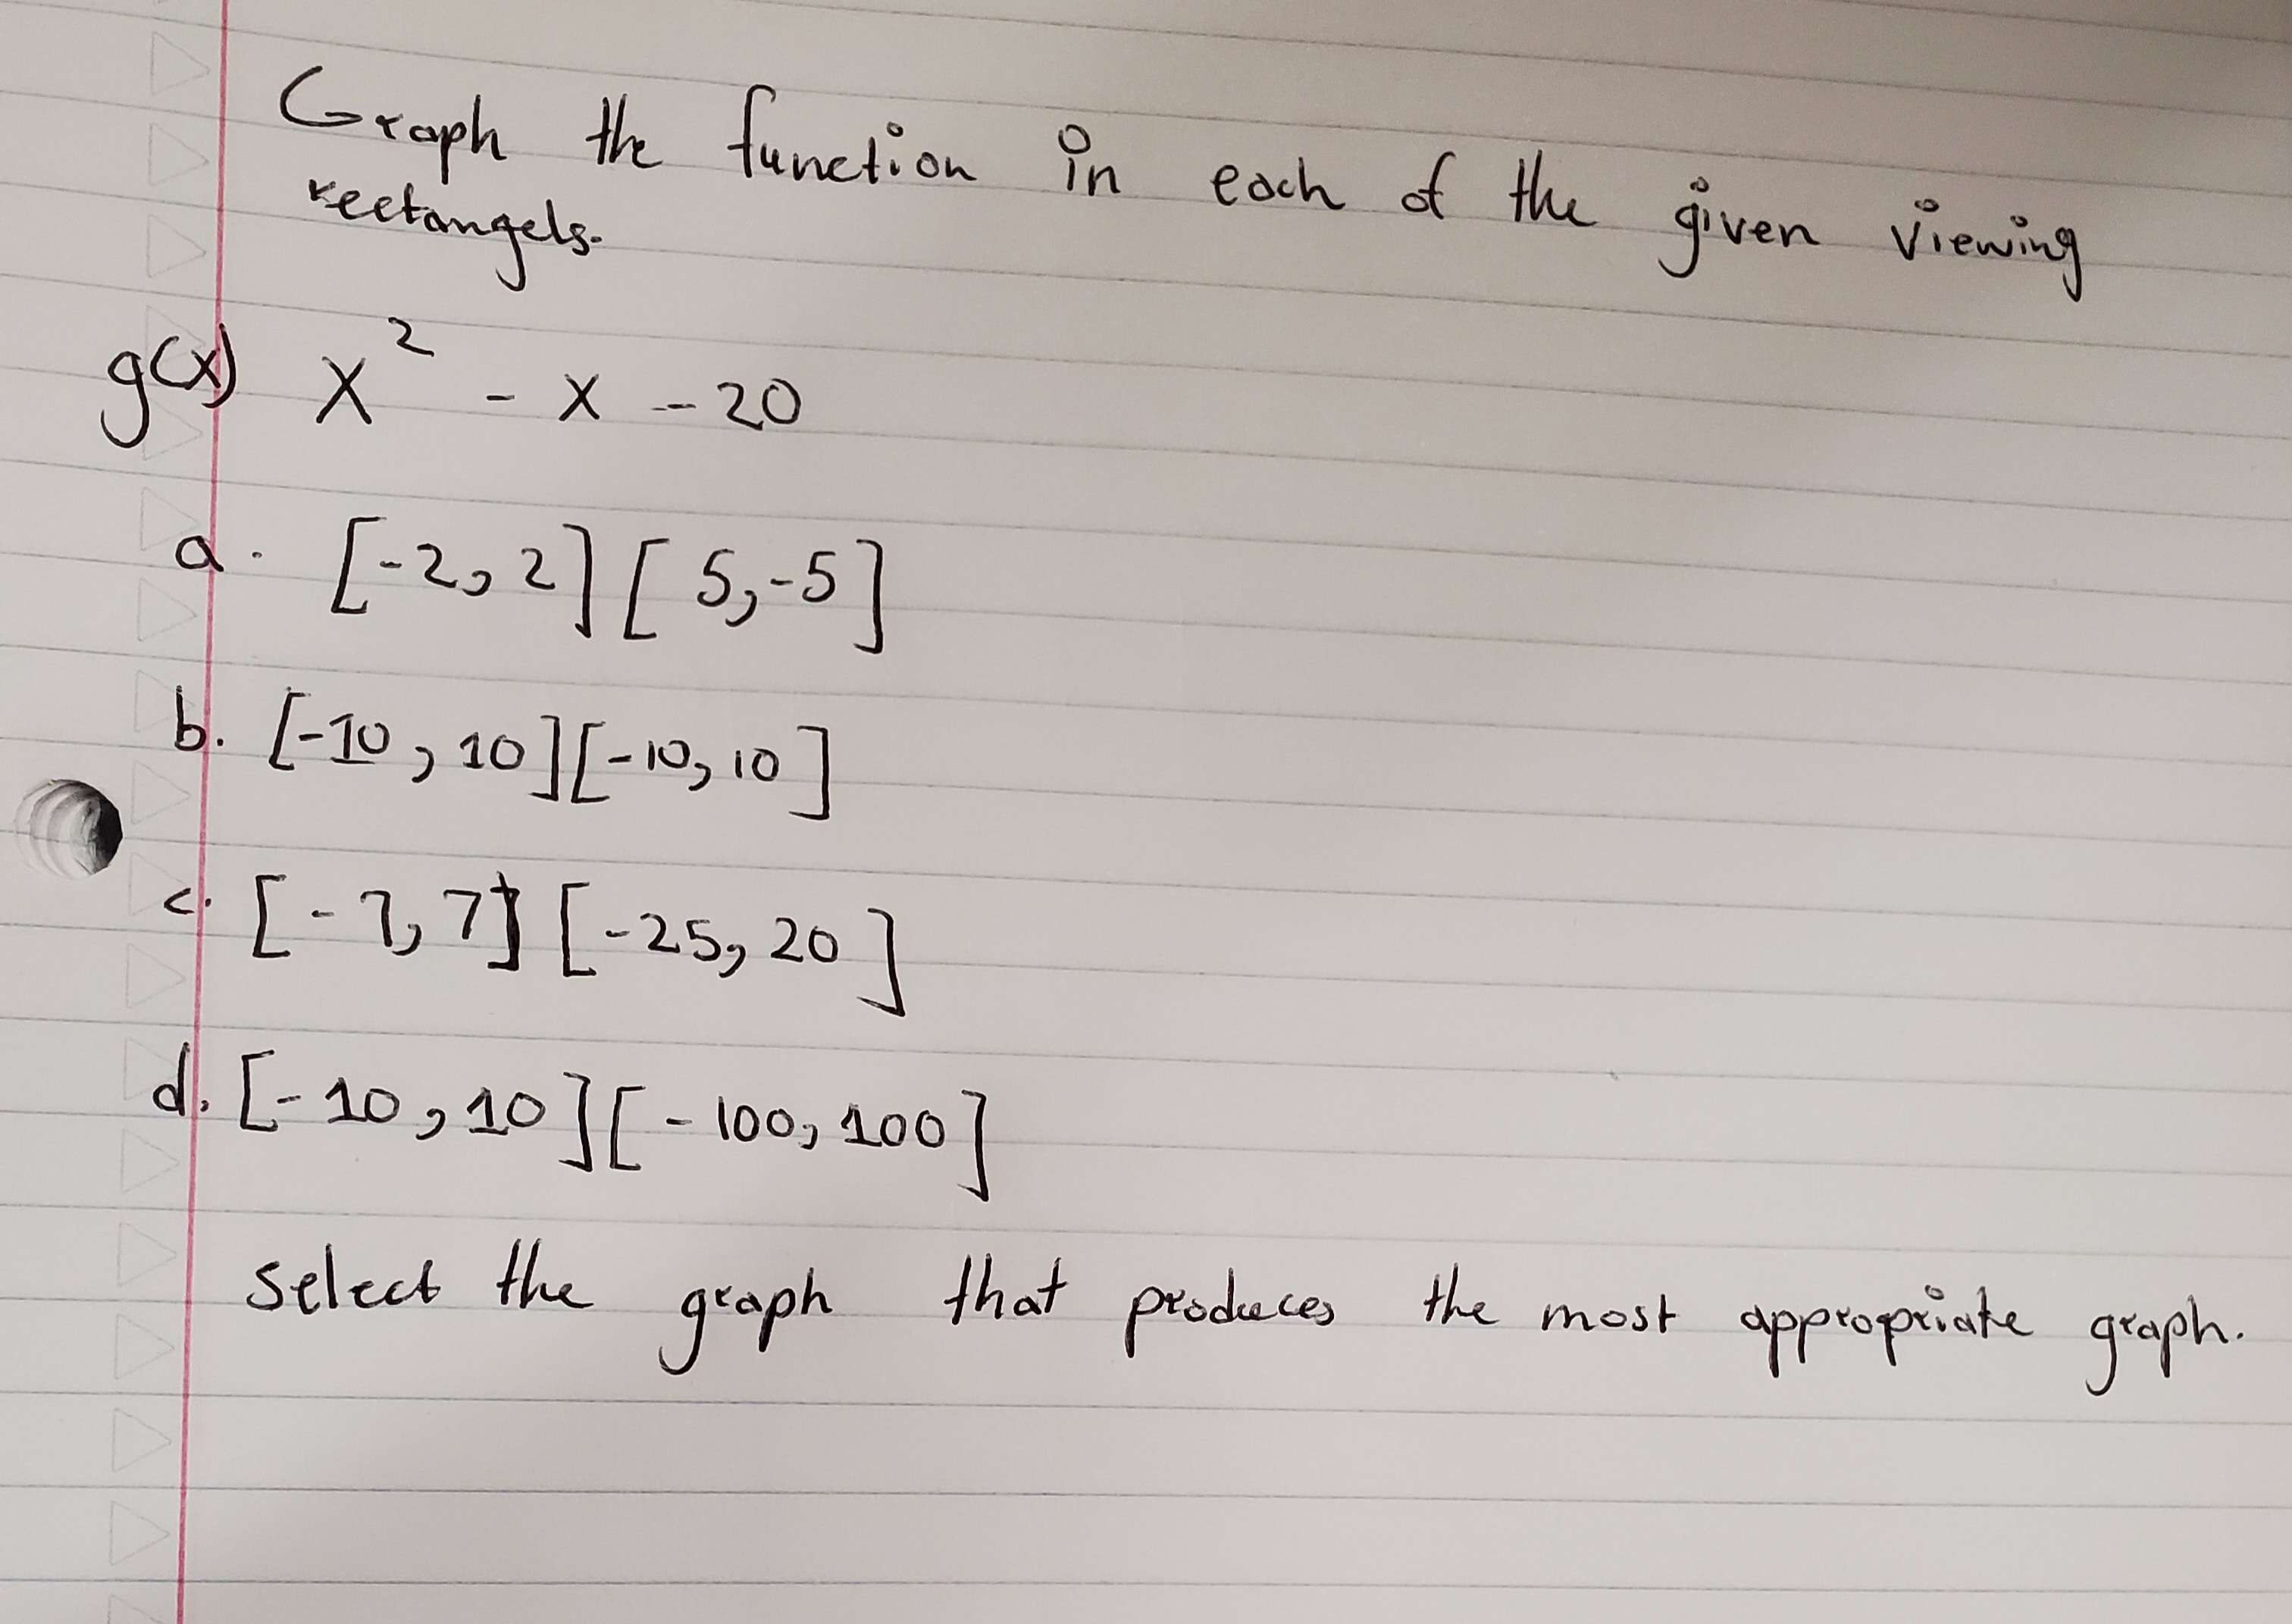 Graph the function in each of the given viewing
rectangels.
g(x) x² - x - 20
a. [-2, 2] [5, -5]
b. [-10, 10] [-10, 10]
c. [-7, 7] [-25, 20]
d. [-10, 10] [-100, 100]
select the graph that produces the most appropriate graph.